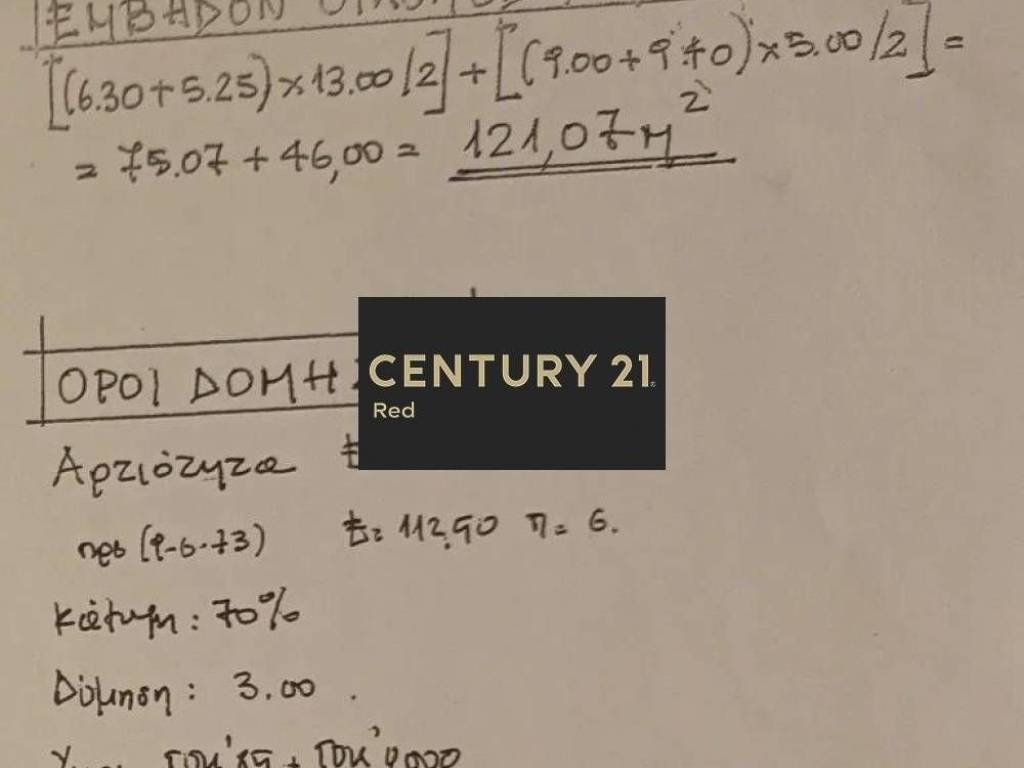 ΕΜΒΑΔΟΝ
[(6.30+5.25)×13.00/2]+[(9.00+9.40)×5.00/2]=
= 75.07 + 46,00 = 121,07 μ2
ΟΡΟΙ ΔΟΜΗ
CENTURY 21
Red
Αρτιότητα
προ (9-6-73) Ε= 112,90 π= 6.
Κάλυψη: 70%
Δόμηση: 3.00